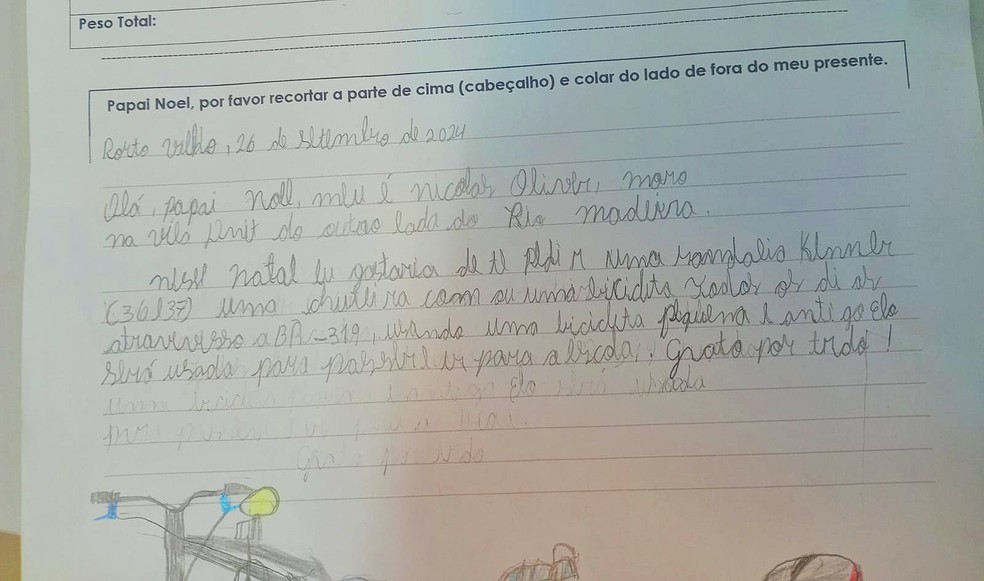 Peso Total:
Papai Noel, por favor recortar a parte de cima (cabeçalho) e colar do lado de fora do meu presente.
Porto Velho, 26 de setembro de 2024
Olá, papai Noel, meu é nicolas Oliver, moro
na vila do outro lada do Rio madeira.
nesse natal eu gostaria de te pedi r uma Kenner
(36/37) uma chuteira com ou uma bicicleta Todos os di as
atravesso a BR-319, usando uma bicicleta pequena e antigo Ela
será usada para passear e ir para a escola. Grato por tudo!
uma e antigo Ela será usada